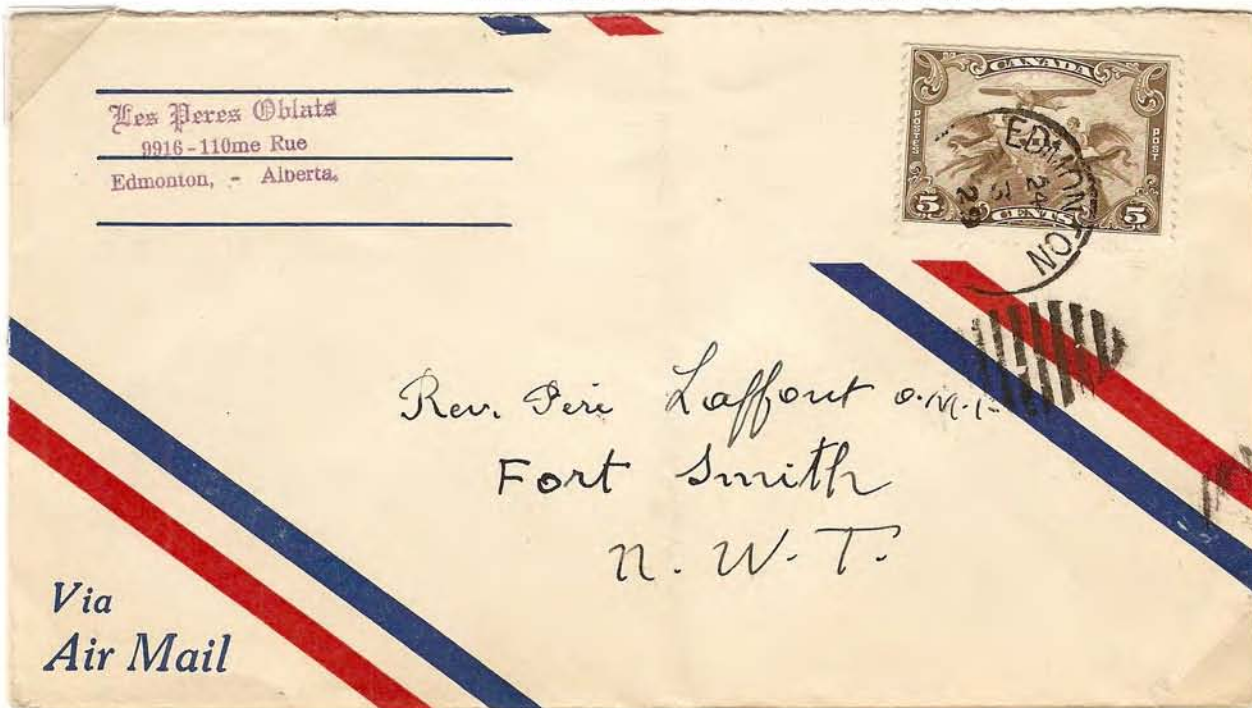 Les Peres Oblats
9916-110me Rue
Edmonton, - Alberta.
CANADA
POSTES
POST
5 CENTS 5
EDMONTON
24
29
Rev. Père Laffont O.M.I.
Fort Smith
N. W. T.
Via
Air Mail